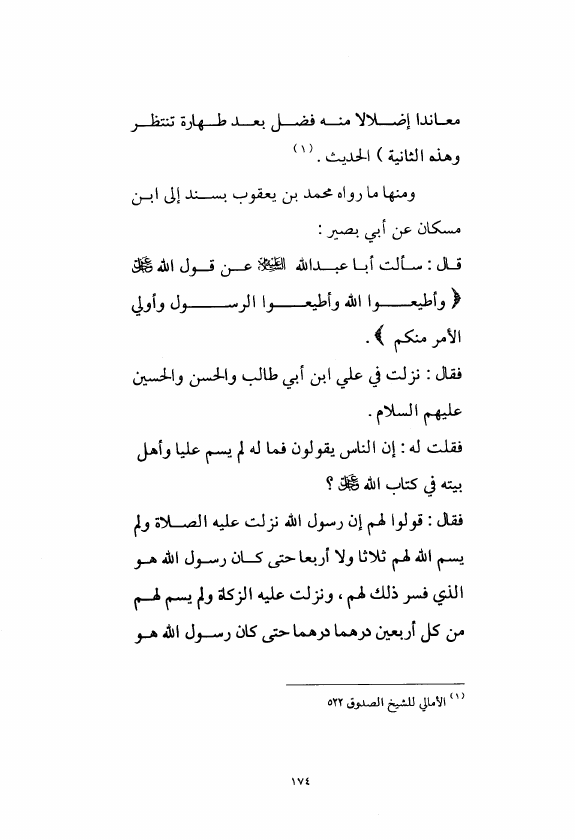 معاندا إضلالا منه فضل بعد طهارة تنتظر
وهذه الثانية ) الحديث . (١)
ومنها ما رواه محمد بن يعقوب بسند إلى ابن
مسكان عن أبي بصير :
قال : سألت أبا عبدالله عليه السلام عن قول الله عز وجل
﴿ وأطيعوا الله وأطيعوا الرسول وأولي
الأمر منكم ﴾ .
فقال : نزلت في علي ابن أبي طالب والحسن والحسين
عليهم السلام .
فقلت له : إن الناس يقولون فما له لم يسم عليا وأهل
بيته في كتاب الله عز وجل ؟
فقال : قولوا لهم إن رسول الله نزلت عليه الصلاة ولم
يسم الله لهم ثلاثا ولا أربعا حتى كان رسول الله هو
الذي فسر ذلك لهم ، ونزلت عليه الزكاة ولم يسم لهم
من كل أربعين درهما درهما حتى كان رسول الله هو
(١) الأمالي للشيخ الصدوق ٥٢٢
١٧٤